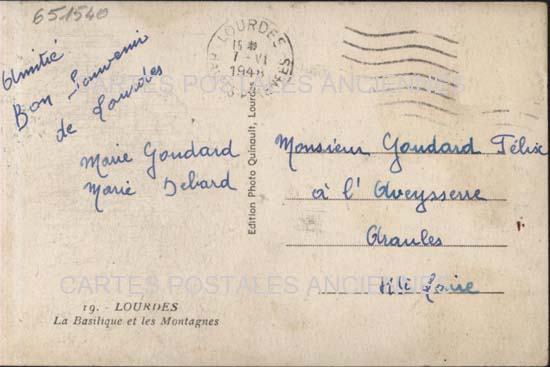 651540
Amitié
Bon Souvenir
de Lourdes
Marie Goudard
Marie Debard
19. - LOURDES
La Basilique et les Montagnes
Edition Photo Quinault, Lourdes
LOURDES
7 - VI
Monsieur Goudard Félix
à l'Aveysserre
Araules
Hte Loire
CARTES POSTALES ANCIENNES
CARTES POSTALES ANCIENNES